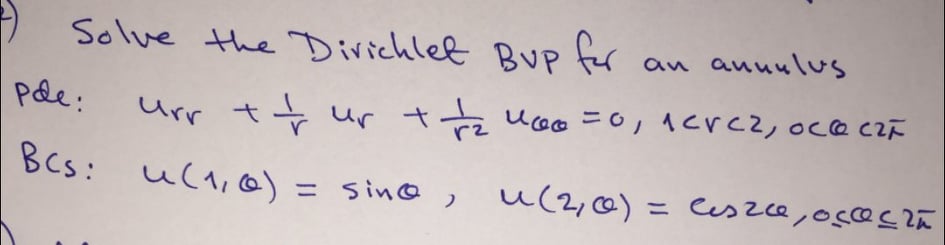 2) Solve the Dirichlet BVP for an annulus
pde: u_rr + 1/r u_r + 1/r² u_θθ = 0, 1<r<2, 0<θ<2π
BCs: u(1,θ) = sinθ, u(2,θ) = cos2θ, 0≤θ≤2π